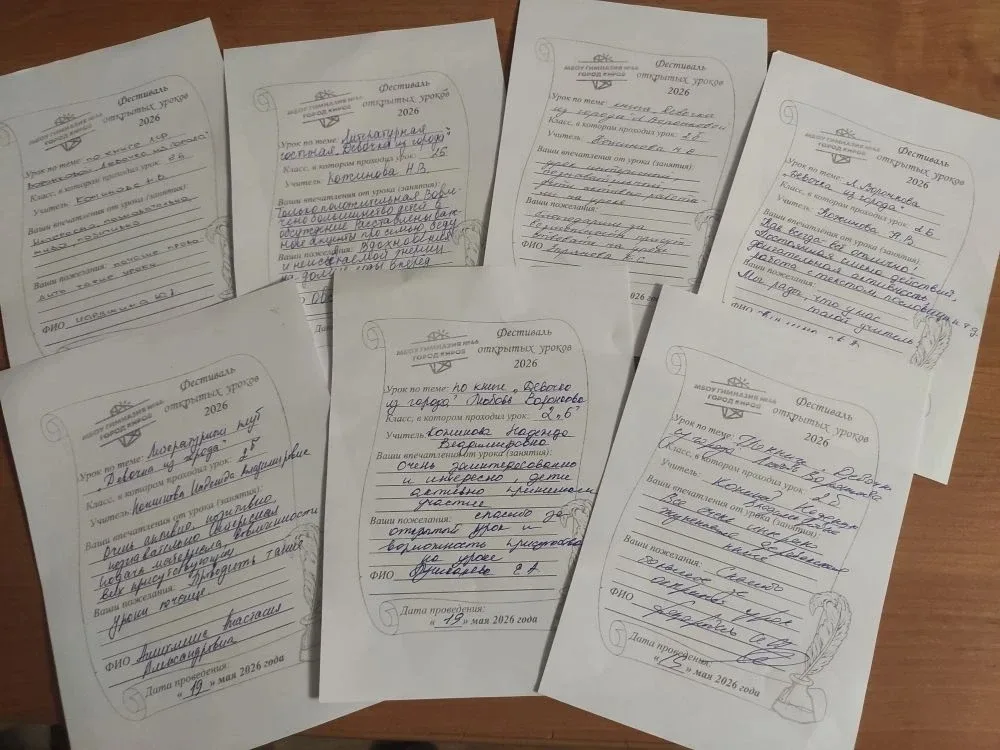 МБОУ ГИМНАЗИЯ №46
ГОРОД КИРОВ
Фестиваль
открытых уроков
2026
Урок по теме: по книге Л.Ф.
Воронковой "Девочка из города"
Класс, в котором проходил урок: 2б
Учитель Кожинова Н.В.
Ваши впечатления от урока (занятия):
познавательно
Ваши пожелания: почаще прово-
дить такие уроки
ФИО
МБОУ ГИМНАЗИЯ №46
ГОРОД КИРОВ
Фестиваль
открытых уроков
2026
Урок по теме: Литературная
гостиная "Девочка из города"
Класс, в котором проходил урок: 2Б
Учитель Кожинова Н.В.
Ваши впечатления от урока (занятия):
Только положительная. Вовле-
чено большинство детей в
обсуждение. Расставлены важ-
ные акценты про семью, беду
Ваши пожелания: Вдохновения
и неиссякаемой энергии
на долгие годы вперед
ФИО
МБОУ ГИМНАЗИЯ №46
ГОРОД КИРОВ
Фестиваль
открытых уроков
2026
Урок по теме: книга "Девочка
из города" Л. Воронковой
Класс, в котором проходил урок: 2Б
Учитель Кожинова Н.В.
Ваши впечатления от урока (занятия):
урок интересный,
познавательный,
дети активно работа-
ли на уроке
Ваши пожелания:
Благодарим за
возможность присут-
ствовать на уроке
ФИО
МБОУ ГИМНАЗИЯ №46
ГОРОД КИРОВ
Фестиваль
открытых уроков
2026
Урок по теме: Л. Воронкова
"Девочка из города"
Класс, в котором проходил урок: 2Б
Учитель: Кожинова Н.В.
Ваши впечатления от урока (занятия):
Как всегда - всё отлично!
Постоянная смена действий,
двигательная активность,
работа с текстом, пословицы и т.д.
Ваши пожелания:
Мы рады, что у нас
такой учитель
ФИО
МБОУ ГИМНАЗИЯ №46
ГОРОД КИРОВ
Фестиваль
открытых уроков
2026
Урок по теме: Литературный клуб
"Девочка из города"
Класс, в котором проходил урок: 2Б
Учитель Кожинова Надежда Владимировна
Ваши впечатления от урока (занятия):
Очень активно, позитивно
познавательно. Интересная
подача материала. Вовлеченность
всех присутствующих
Ваши пожелания: Проводить такие
уроки почаще.
ФИО Анастасия
Александровна
Дата проведения:
« 19 » мая 2026 года
МБОУ ГИМНАЗИЯ №46
ГОРОД КИРОВ
Фестиваль
открытых уроков
2026
Урок по теме: по книге "Девочка
из города" Любовь Воронкова
Класс, в котором проходил урок: 2 "б"
Учитель Кожинова Надежда
Владимировна
Ваши впечатления от урока (занятия):
Очень заинтересованно
и интересно, дети
активно принимали
участие
Ваши пожелания: спасибо за
открытый урок и
возможность присутствовать
на уроке
ФИО Е.А.
Дата проведения:
« 19 » мая 2026 года
МБОУ ГИМНАЗИЯ №46
ГОРОД КИРОВ
Фестиваль
открытых уроков
2026
Урок по теме: По книге "Девочка
из города" Любовь Воронкова
Класс, в котором проходил урок: 2Б
Учитель: Кожинова Надежда
Владимировна
Ваши впечатления от урока (занятия):
Все очень
Ваши пожелания: Спасибо
большое за
открытый урок
ФИО
Дата проведения:
мая 2026 года